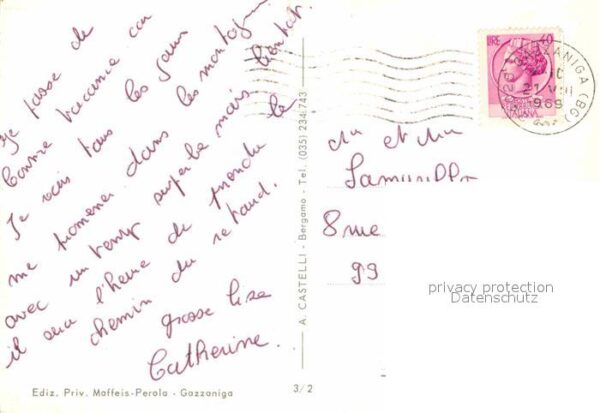 Je passe de
bonne vacance car
Je vais tous les jours
me promener dans les montagnes
avec un temps superbe mais bientôt
il sera l'heure de prendre le
chemin du retour.
grosse bise
Catherine.
Ediz. Priv. Maffeis-Perola - Gazzaniga
3/2
A. CASTELLI - Bergamo - Tel. (035) 234743
LIRE 40
ITALIANA
GAZZANIGA (BG)
10
21 VIII
1969
8 rue
99
privacy protection
Datenschutz